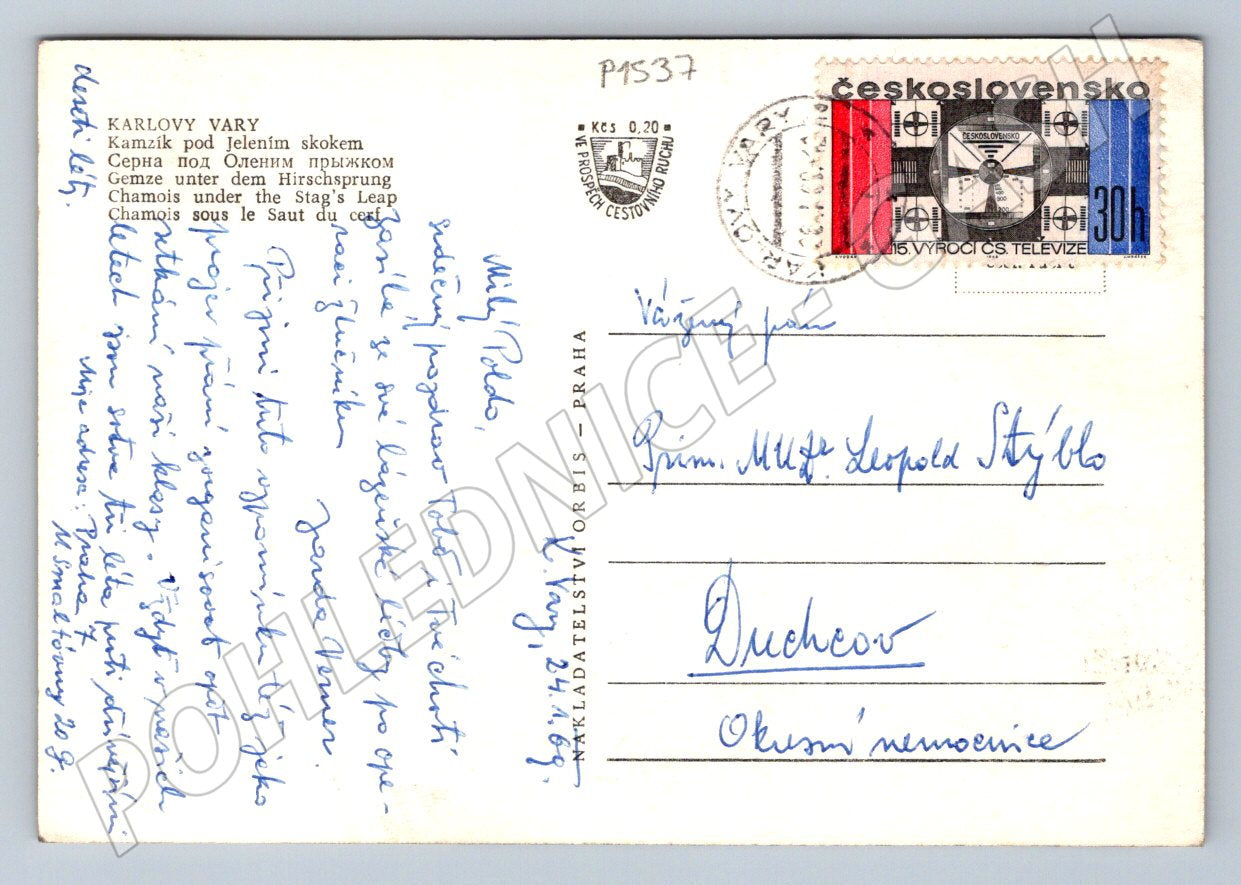 P1537
KARLOVY VARY
Kamzík pod Jelením skokem
Серна под Оленим прыжком
Gemze unter dem Hirschsprung
Chamois under the Stag's Leap
Chamois sous le Saut du cerf
Kčs 0,20
VE PROSPĚCH CESTOVNÍHO RUCHU
KARLOVY VARY
československo
ČESKOSLOVENSKO
30h
15. VÝROČÍ ČS. TELEVIZE
NAKLADATELSTVÍ ORBIS – PRAHA
K. Vary, 24.1.69.
Milý Poldo,
srdečný pozdrav Tobě i Tvé choti
zasílá ze své lázeňské léčby po ope-
raci žlučníku
Jarda Verner.
Přijmi tuto vzpomínku též jako
projev přání zorganisovat opět
setkání naší klasy. Vždyť v našich
letech jsou sotva tři léta proti dřívějším
deseti léty.
Moje adresa: Praha 7
U Smaltovny 20 g.
Vážený pán
Prim. MUDr. Leopold Stýblo
Duchcov
Okresní nemocnice
POHLEDNICE - CASH